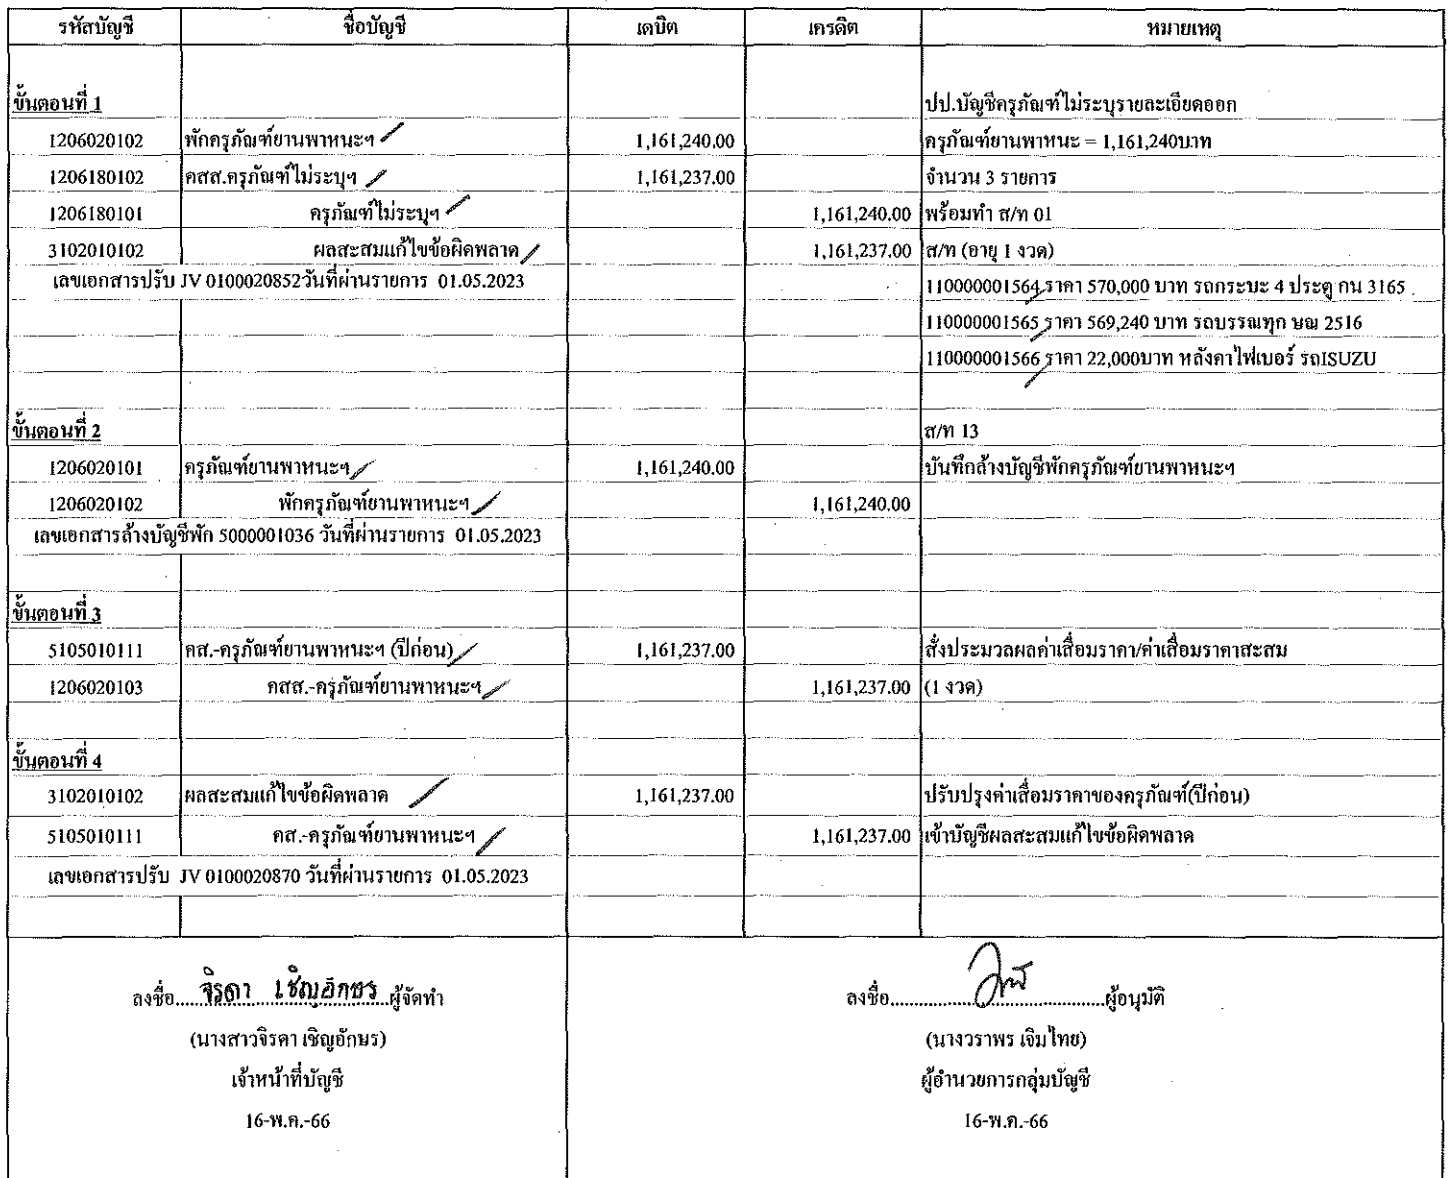 รหัสบัญชี ชื่อบัญชี เดบิต เครดิต หมายเหตุ
ขั้นตอนที่ 1 ปป.บัญชีครุภัณฑ์ไม่ระบุรายละเอียดออก
1206020102 พักครุภัณฑ์ยานพาหนะฯ 1,161,240.00 ครุภัณฑ์ยานพาหนะ = 1,161,240บาท
1206180102 คสส.ครุภัณฑ์ไม่ระบุฯ 1,161,237.00 จำนวน 3 รายการ
1206180101 ครุภัณฑ์ไม่ระบุฯ 1,161,240.00 พร้อมทำ ส/ท 01
3102010102 ผลสะสมแก้ไขข้อผิดพลาด 1,161,237.00 ส/ท (อายุ 1 งวด)
เลขเอกสารปรับ JV 0100020852วันที่ผ่านรายการ 01.05.2023 110000001564 ราคา 570,000 บาท รถกระบะ 4 ประตู กน 3165
110000001565 ราคา 569,240 บาท รถบรรณทุก ษณ 2516
110000001566 ราคา 22,000บาท หลังคาไฟเบอร์ รถISUZU
ขั้นตอนที่ 2 ส/ท 13
1206020101 ครุภัณฑ์ยานพาหนะฯ 1,161,240.00 บันทึกล้างบัญชีพักครุภัณฑ์ยานพาหนะฯ
1206020102 พักครุภัณฑ์ยานพาหนะฯ 1,161,240.00
เลขเอกสารล้างบัญชีพัก 5000001036 วันที่ผ่านรายการ 01.05.2023
ขั้นตอนที่ 3
5105010111 คส.-ครุภัณฑ์ยานพาหนะฯ (ปีก่อน) 1,161,237.00 สั่งประมวลผลค่าเสื่อมราคา/ค่าเสื่อมราคาสะสม
1206020103 คสส.-ครุภัณฑ์ยานพาหนะฯ 1,161,237.00 (1 งวด)
ขั้นตอนที่ 4
3102010102 ผลสะสมแก้ไขข้อผิดพลาด 1,161,237.00 ปรับปรุงค่าเสื่อมราคาของครุภัณฑ์(ปีก่อน)
5105010111 คส.-ครุภัณฑ์ยานพาหนะฯ 1,161,237.00 เข้าบัญชีผลสะสมแก้ไขข้อผิดพลาด
เลขเอกสารปรับ JV 0100020870 วันที่ผ่านรายการ 01.05.2023
ลงชื่อ......จิรดา เชิญอักษร......ผู้จัดทำ ลงชื่อ..............................ผู้อนุมัติ
(นางสาวจิรดา เชิญอักษร) (นางวราพร เจิมไทย)
เจ้าหน้าที่บัญชี ผู้อำนวยการกลุ่มบัญชี
16-พ.ค.-66 16-พ.ค.-66